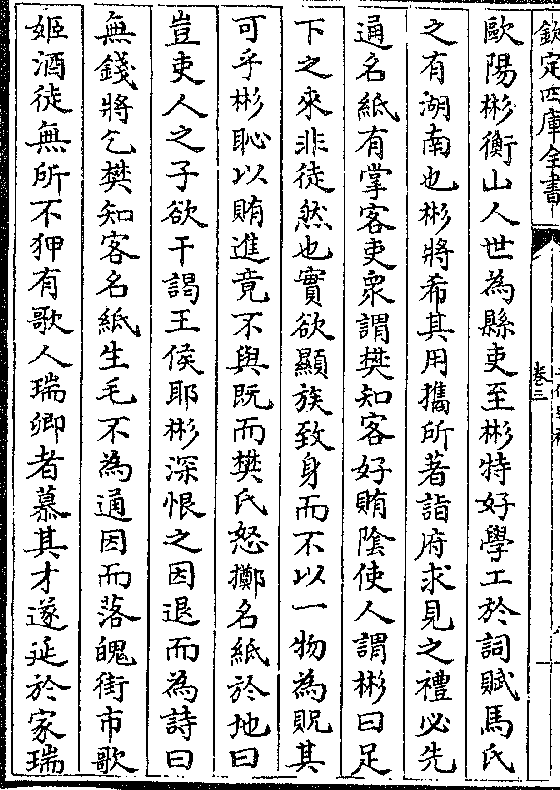 欽定四庫全書
卷三
歐陽彬衡山人世為縣吏至彬特好學工於詞賦馬氏
之有湖南也彬將希其用攜所著詣府求見之禮必先
通名紙有掌客吏衆謂樊知客好賄陰使人謂彬曰足
下之來非徒然也實欲顯族致身而不以一物為貺其
可乎彬恥以賄進竟不與既而樊氏怒擲名紙於地曰
豈吏人之子欲干謁王侯耶彬深恨之因退而為詩曰
無錢將乞樊知客名紙生毛不為通因而落魄街市歌
姬酒徒無所不狎有歌人瑞卿者慕其才遂延於家瑞